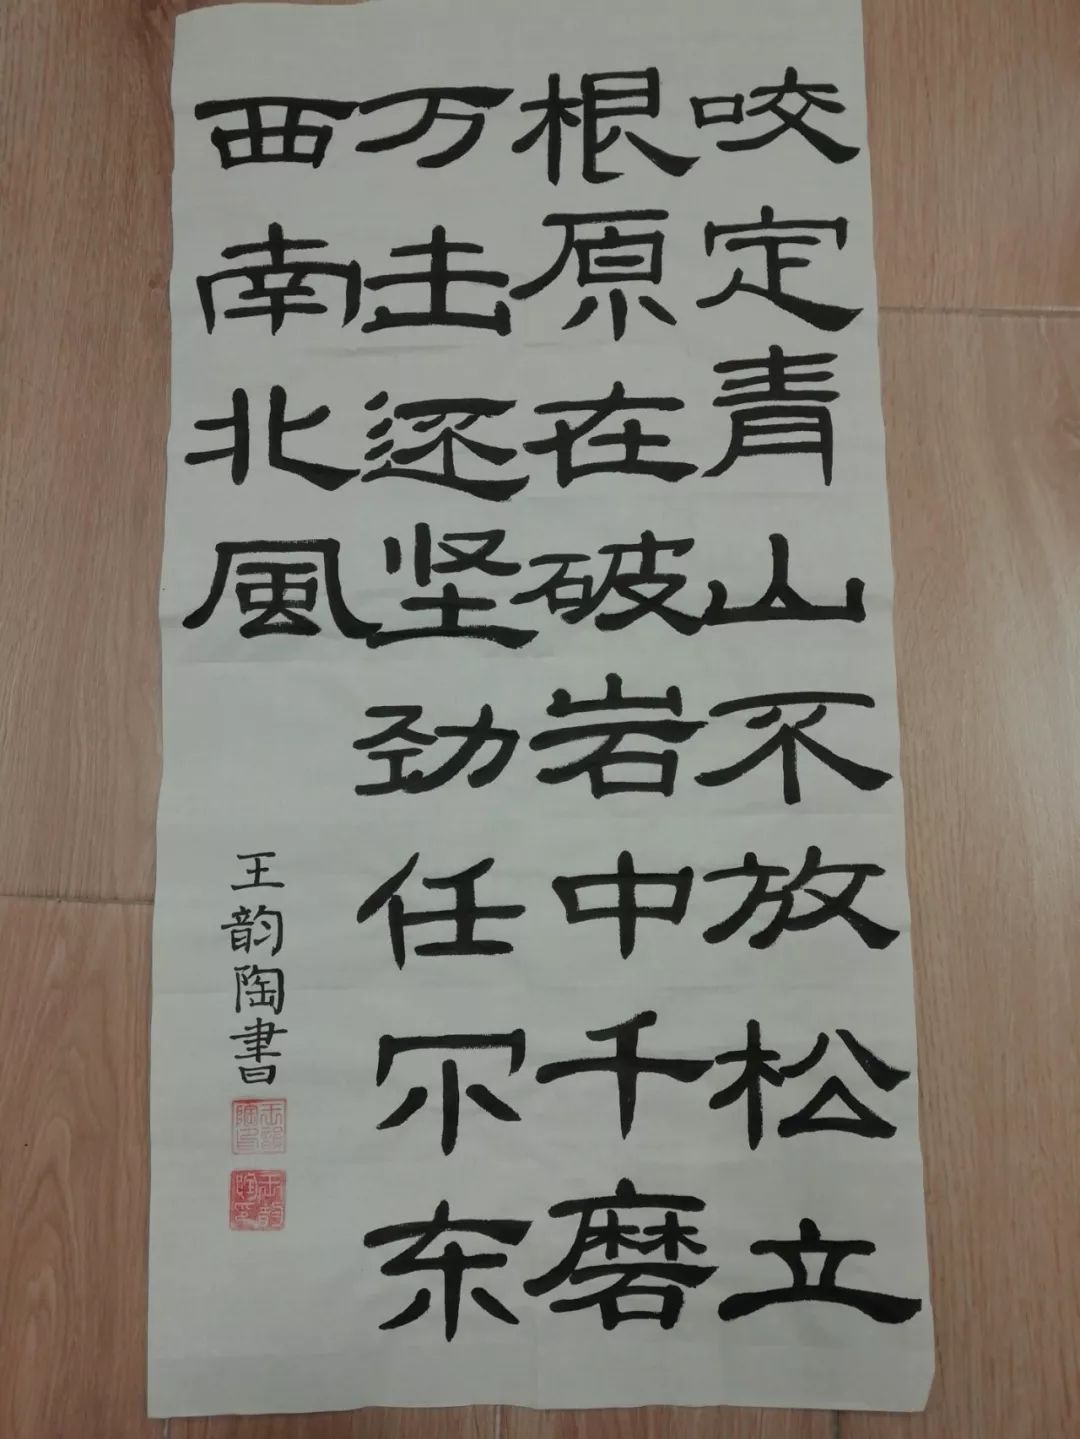 咬定青山不放松立
根原在破岩中千磨
万击还坚劲任尔东
西南北風
王韵陶書